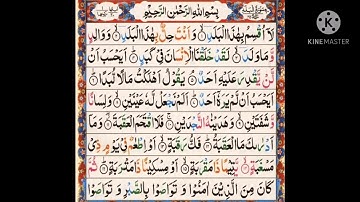 بِسْمِ اللّٰهِ الرَّحْمٰنِ الرَّحِيْمِ
لَاۤ اُقْسِمُ بِهٰذَا الْبَلَدِ ۙ وَاَنْتَ حِلٌّۢ بِهٰذَا الْبَلَدِ ۙ وَوَالِدٍ
وَّمَا وَلَدَ ۙ لَقَدْ خَلَقْنَا الْاِنْسَانَ فِيْ كَبَدٍ ؕ اَيَحْسَبُ اَنْ
لَّنْ يَّقْدِرَ عَلَيْهِ اَحَدٌ ۘ يَقُوْلُ اَهْلَكْتُ مَالًا لُّبَدًا ؕ
اَيَحْسَبُ اَنْ لَّمْ يَرَهٗۤ اَحَدٌ ؕ اَلَمْ نَجْعَلْ لَّهٗ عَيْنَيْنِ ۙ وَلِسَانًا
وَّشَفَتَيْنِ ۙ وَهَدَيْنٰهُ النَّجْدَيْنِ ۚ فَلَا اقْتَحَمَ الْعَقَبَةَ ۖ وَمَاۤ
اَدْرٰىكَ مَا الْعَقَبَةُ ؕ فَكُّ رَقَبَةٍ ۙ اَوْ اِطْعٰمٌ فِيْ يَوْمٍ ذِيْ
مَسْغَبَةٍ ۙ يَّتِيْمًا ذَا مَقْرَبَةٍ ۙ اَوْ مِسْكِيْنًا ذَا مَتْرَبَةٍ ؕ ثُمَّ
كَانَ مِنَ الَّذِيْنَ اٰمَنُوْا وَتَوَاصَوْا بِالصَّبْرِ وَتَوَاصَوْا
Made with
KINEMASTER